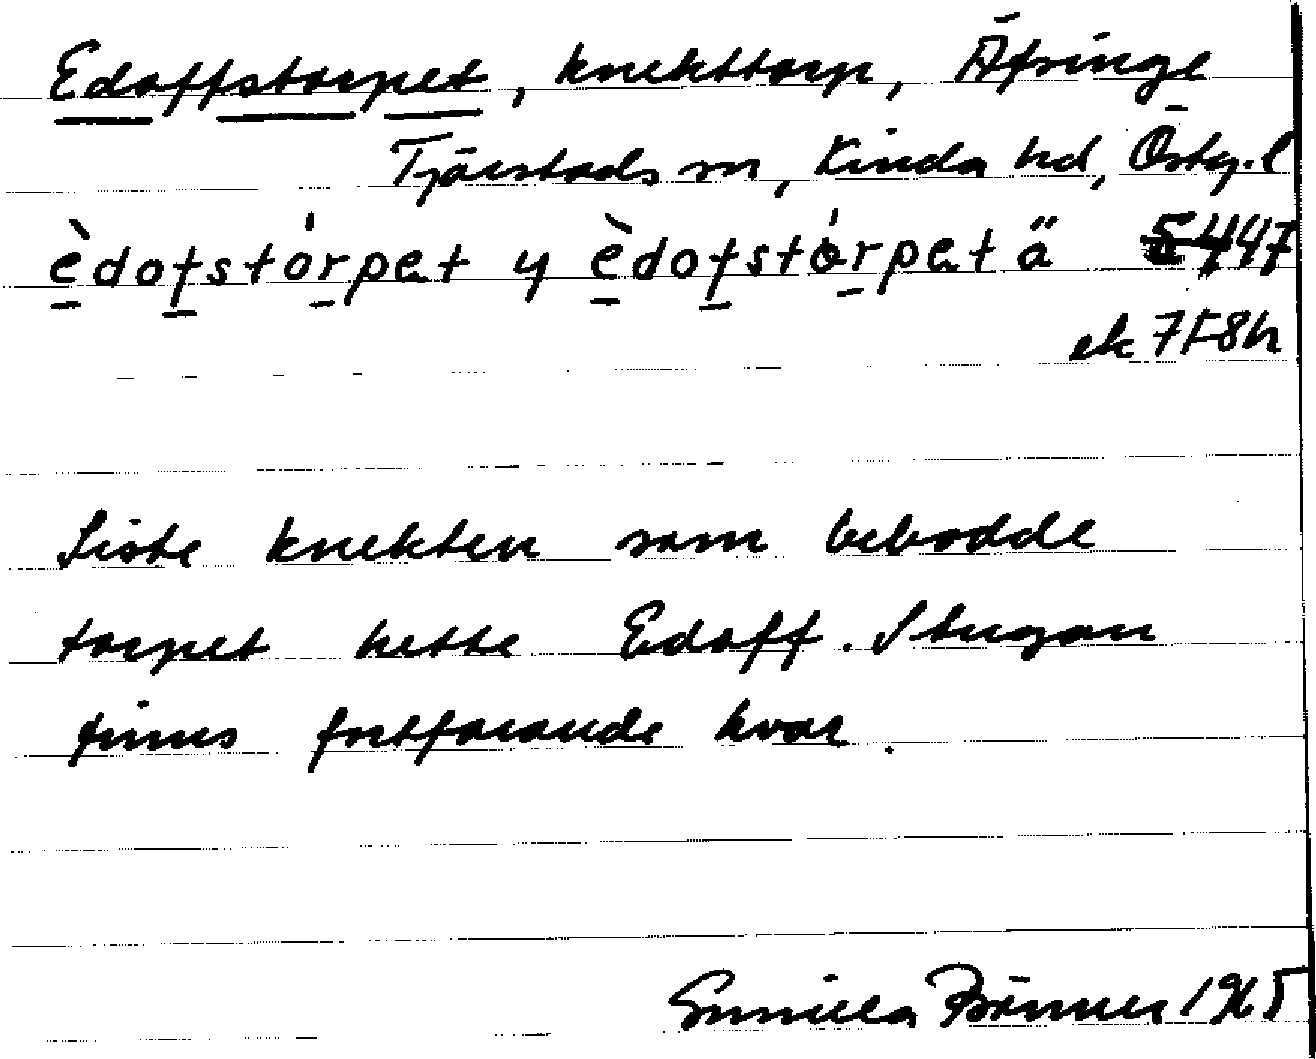 Edoffstorpet, knekttorp, Äfringe
Tjärstads sn, Kinda hd, Östg.l
èdofstórpet y èdofstórpet ä 5447
ek 7F8h
Siste knekten som bebodde
torpet hette Edoff. Stugan
finns fortfarande kvar.
Gunilla 1965